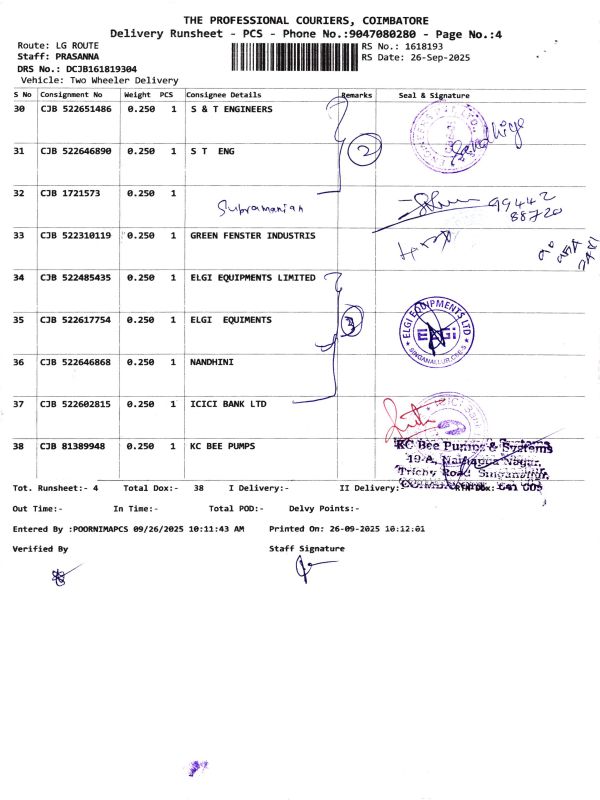 THE PROFESSIONAL COURIERS, COIMBATORE
Delivery Runsheet - PCS - Phone No.:9047080280 - Page No.:4
Route: LG ROUTE
RS No.: 1618193
Staff: PRASANNA
RS Date: 26-Sep-2025
DRS No.: DCJB161819304
Vehicle: Two Wheeler Delivery
S No Consignment No Weight PCS Consignee Details Remarks Seal & Signature
30 CJB 522651486 0.250 1 S & T ENGINEERS
31 CJB 522646890 0.250 1 S T ENG
2
32 CJB 1721573 0.250 1
Subramanian
99442
88720
33 CJB 522310119 0.250 1 GREEN FENSTER INDUSTRIS
34 CJB 522485435 0.250 1 ELGI EQUIPMENTS LIMITED
35 CJB 522617754 0.250 1 ELGI EQUIMENTS
ELGI EQUIPMENTS LTD
ELGi
SINGANALLUR, CBE-5
36 CJB 522646868 0.250 1 NANDHINI
37 CJB 522602815 0.250 1 ICICI BANK LTD
38 CJB 81389948 0.250 1 KC BEE PUMPS
KC Bee Pumps & Systems
19-A, Nanjappa Nagar,
Trichy Road, Singanallur,
Tot. Runsheet:- 4 Total Dox:- 38 I Delivery:- II Delivery:-
Out Time:- In Time:- Total POD:- Delvy Points:-
Entered By :POORNIMAPCS 09/26/2025 10:11:43 AM Printed On: 26-09-2025 10:12:01
Verified By Staff Signature